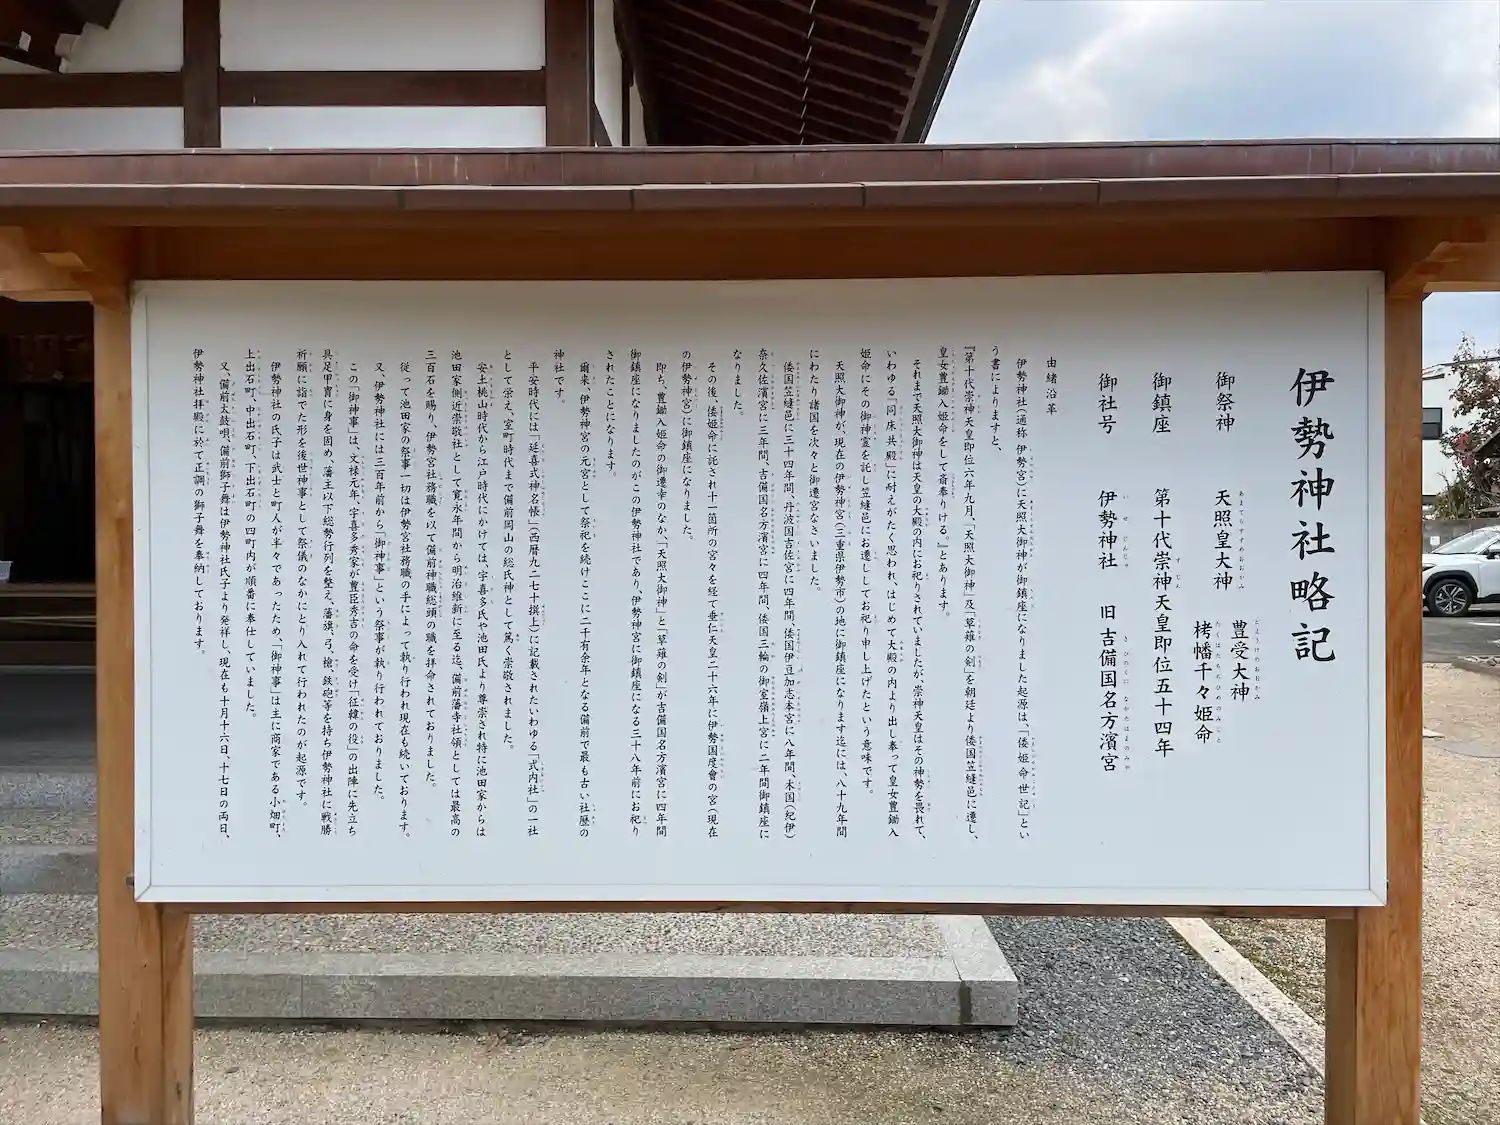 伊勢神社略記
御祭神 天照皇大神 豊受大神
栲幡千々姫命
御鎮座 第十代崇神天皇即位五十四年
御社号 伊勢神社 旧 吉備国名方濱宮
由緒沿革
伊勢神社(通称 伊勢宮)に天照大御神が御鎮座になりました起源は、「倭姫命世記」とい
う書によりますと、
『第十代崇神天皇即位六年九月、「天照大御神」及「草薙の剣」を朝廷より倭国笠縫邑に遷し、
皇女豊鋤入姫命をして斎奉りける。』とあります。
それまで天照大御神は天皇の大殿の内にお祀りされていましたが、崇神天皇はその神勢を畏れて、
いわゆる「同床共殿」に耐えがたく思われ、はじめて大殿の内より出し奉って皇女豊鋤入
姫命にその御神霊を託し笠縫邑にお遷ししてお祀り申し上げたという意味です。
天照大御神が、現在の伊勢神宮(三重県伊勢市)の地に御鎮座になります迄には、八十九年間
にわたり諸国を次々と御遷宮なさいました。
倭国笠縫邑に三十四年間、丹波国吉佐宮に四年間、倭国伊豆加志本宮に八年間、木国(紀伊)
奈久佐濱宮に三年間、吉備国名方濱宮に四年間、倭国三輪の御室嶺上宮に二年間御鎮座に
なりました。
その後、倭姫命に託され十一箇所の宮々を経て垂仁天皇二十六年に伊勢国度會の宮(現在
の伊勢神宮)に御鎮座になりました。
即ち、豊鋤入姫命の御遷幸のなか、「天照大御神」と「草薙の剣」が吉備国名方濱宮に四年間
御鎮座になりましたのがこの伊勢神社であり、伊勢神宮に御鎮座になる三十八年前にお祀り
されたことになります。
爾来、伊勢神宮の元宮として祭祀を続けここに二千有余年となる備前で最も古い社歴の
神社です。
平安時代には「延喜式神名帳」(西暦九二七十撰上)に記載されたいわゆる「式内社」の一社
として栄え、室町時代まで備前岡山の総氏神として篤く崇敬されました。
安土桃山時代から江戸時代にかけては、宇喜多氏や池田氏より尊崇され特に池田家からは
池田家側近崇敬社として寛永年間から明治維新に至る迄、備前藩寺社領としては最高の
三百石を賜り、伊勢宮社務職を以て備前神職総頭の職を拝命されておりました。
従って池田家の祭事一切は伊勢宮社務職の手によって執り行われ現在も続いております。
又、伊勢神社には三百年前から「御神事」という祭事が執り行われておりました。
この「御神事」は、文禄元年、宇喜多秀家が豊臣秀吉の命を受け「征韓の役」の出陣に先立ち
具足甲冑に身を固め、藩主以下総勢行列を整え、藩旗、弓、槍、鉄砲等を持ち伊勢神社に戦勝
祈願に詣でた形を後世神事として祭儀のなかにとり入れて行われたのが起源です。
伊勢神社の氏子は武士と町人が半々であったため、「御神事」は主に商家である小畑町、
上出石町、中出石町、下出石町の四町内が順番に奉仕していました。
又、備前太鼓唄、備前獅子舞は伊勢神社氏子より発祥し、現在も十月十六日、十七日の両日、
伊勢神社拝殿に於て正調の獅子舞を奉納しております。